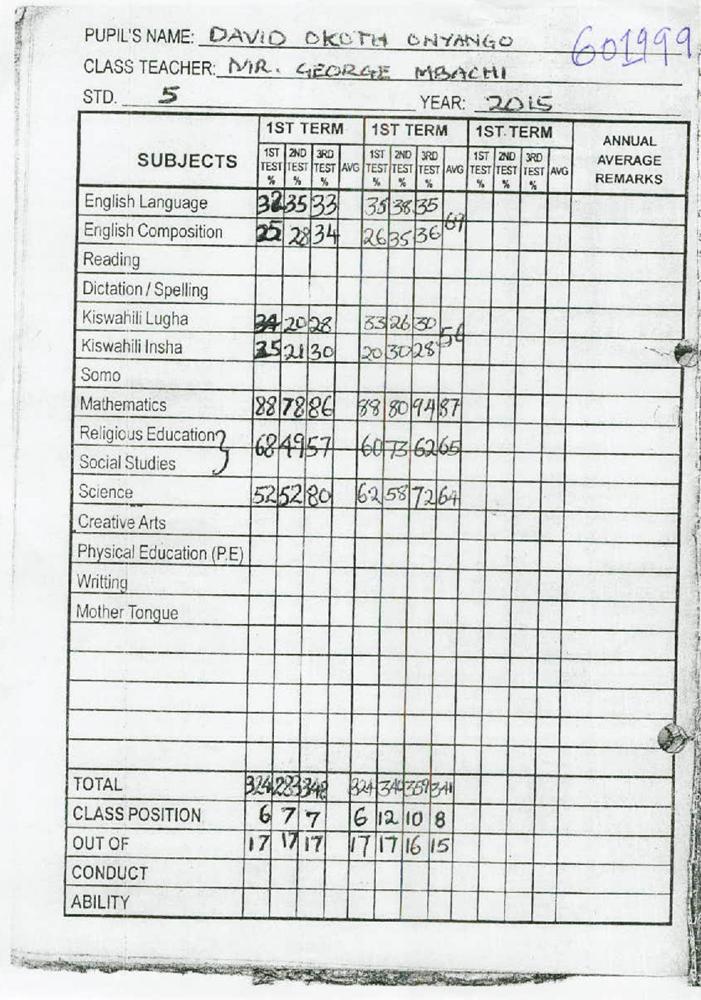 PUPIL'S NAME: DAVID OKOTH ONYANGO 601999
CLASS TEACHER: MR. GEORGE MBACHI
STD. 5 YEAR: 2015
SUBJECTS 1ST TERM 1ST TERM 1ST TERM ANNUAL AVERAGE REMARKS
1ST TEST % 2ND TEST % 3RD TEST % AVG 1ST TEST % 2ND TEST % 3RD TEST % AVG 1ST TEST % 2ND TEST % 3RD TEST % AVG
English Language 32 35 33 35 38 35
English Composition 25 28 34 26 35 36 69
Reading
Dictation / Spelling
Kiswahili Lugha 34 20 28 33 26 30
Kiswahili Insha 25 21 30 20 30 28 56
Somo
Mathematics 88 78 86 88 80 94 87
Religious Education 68 49 57 60 73 62 65
Social Studies
Science 52 52 80 62 58 72 64
Creative Arts
Physical Education (P.E)
Writting
Mother Tongue
TOTAL 324 283 348 324 340 359 341
CLASS POSITION 6 7 7 6 12 10 8
OUT OF 17 17 17 17 17 16 15
CONDUCT
ABILITY